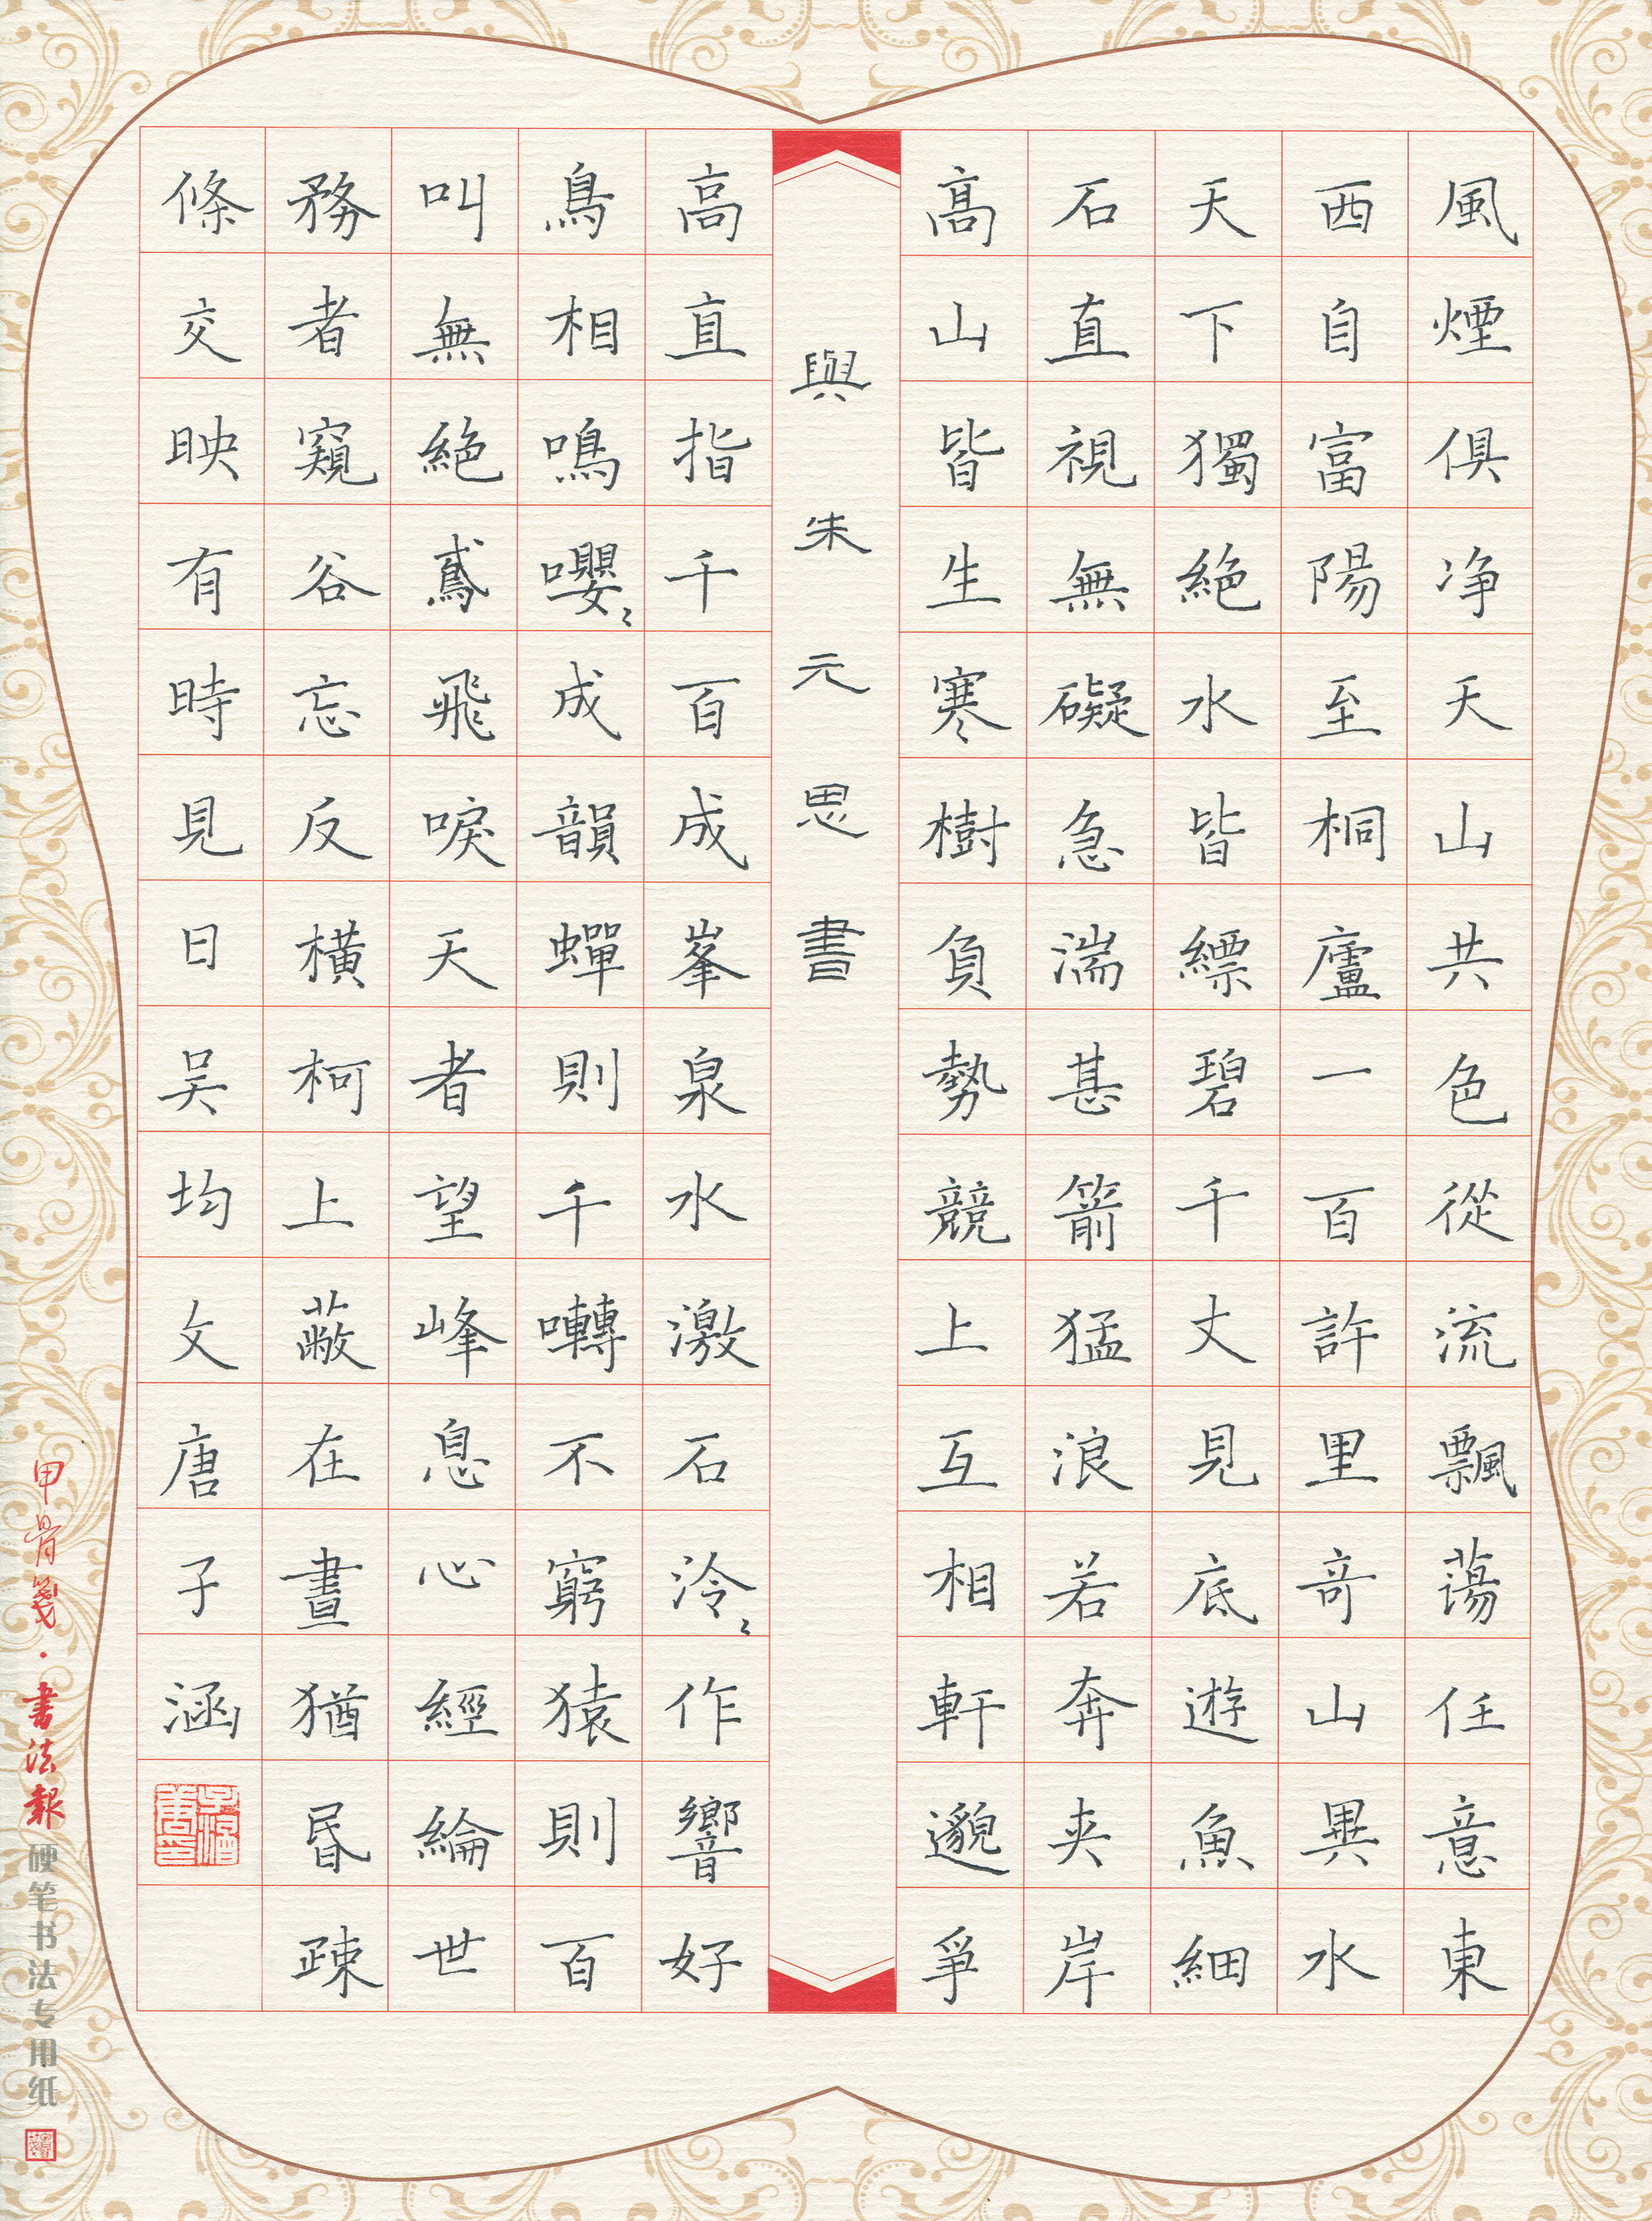 風煙俱净天山共色從流飄蕩任意東
西自富陽至桐廬一百許里奇山水
天下獨絕水皆縹碧千丈見底遊魚細
石直視無礙急湍甚箭猛浪若奔夾岸
高山皆生寒樹負勢競上互相軒邈爭
與朱元思書
高直指千百成峯泉水激石泠〻作響好
鳥相鳴嚶〻成韻蟬則千囀不窮猿則百
叫無絕鳶飛唳天者望峰息心經綸世
務者窺谷忘反橫柯上蔽在晝猶昏疎
條交映有時見日吴均文唐子涵
甲骨箋·書法報硬笔书法专用纸